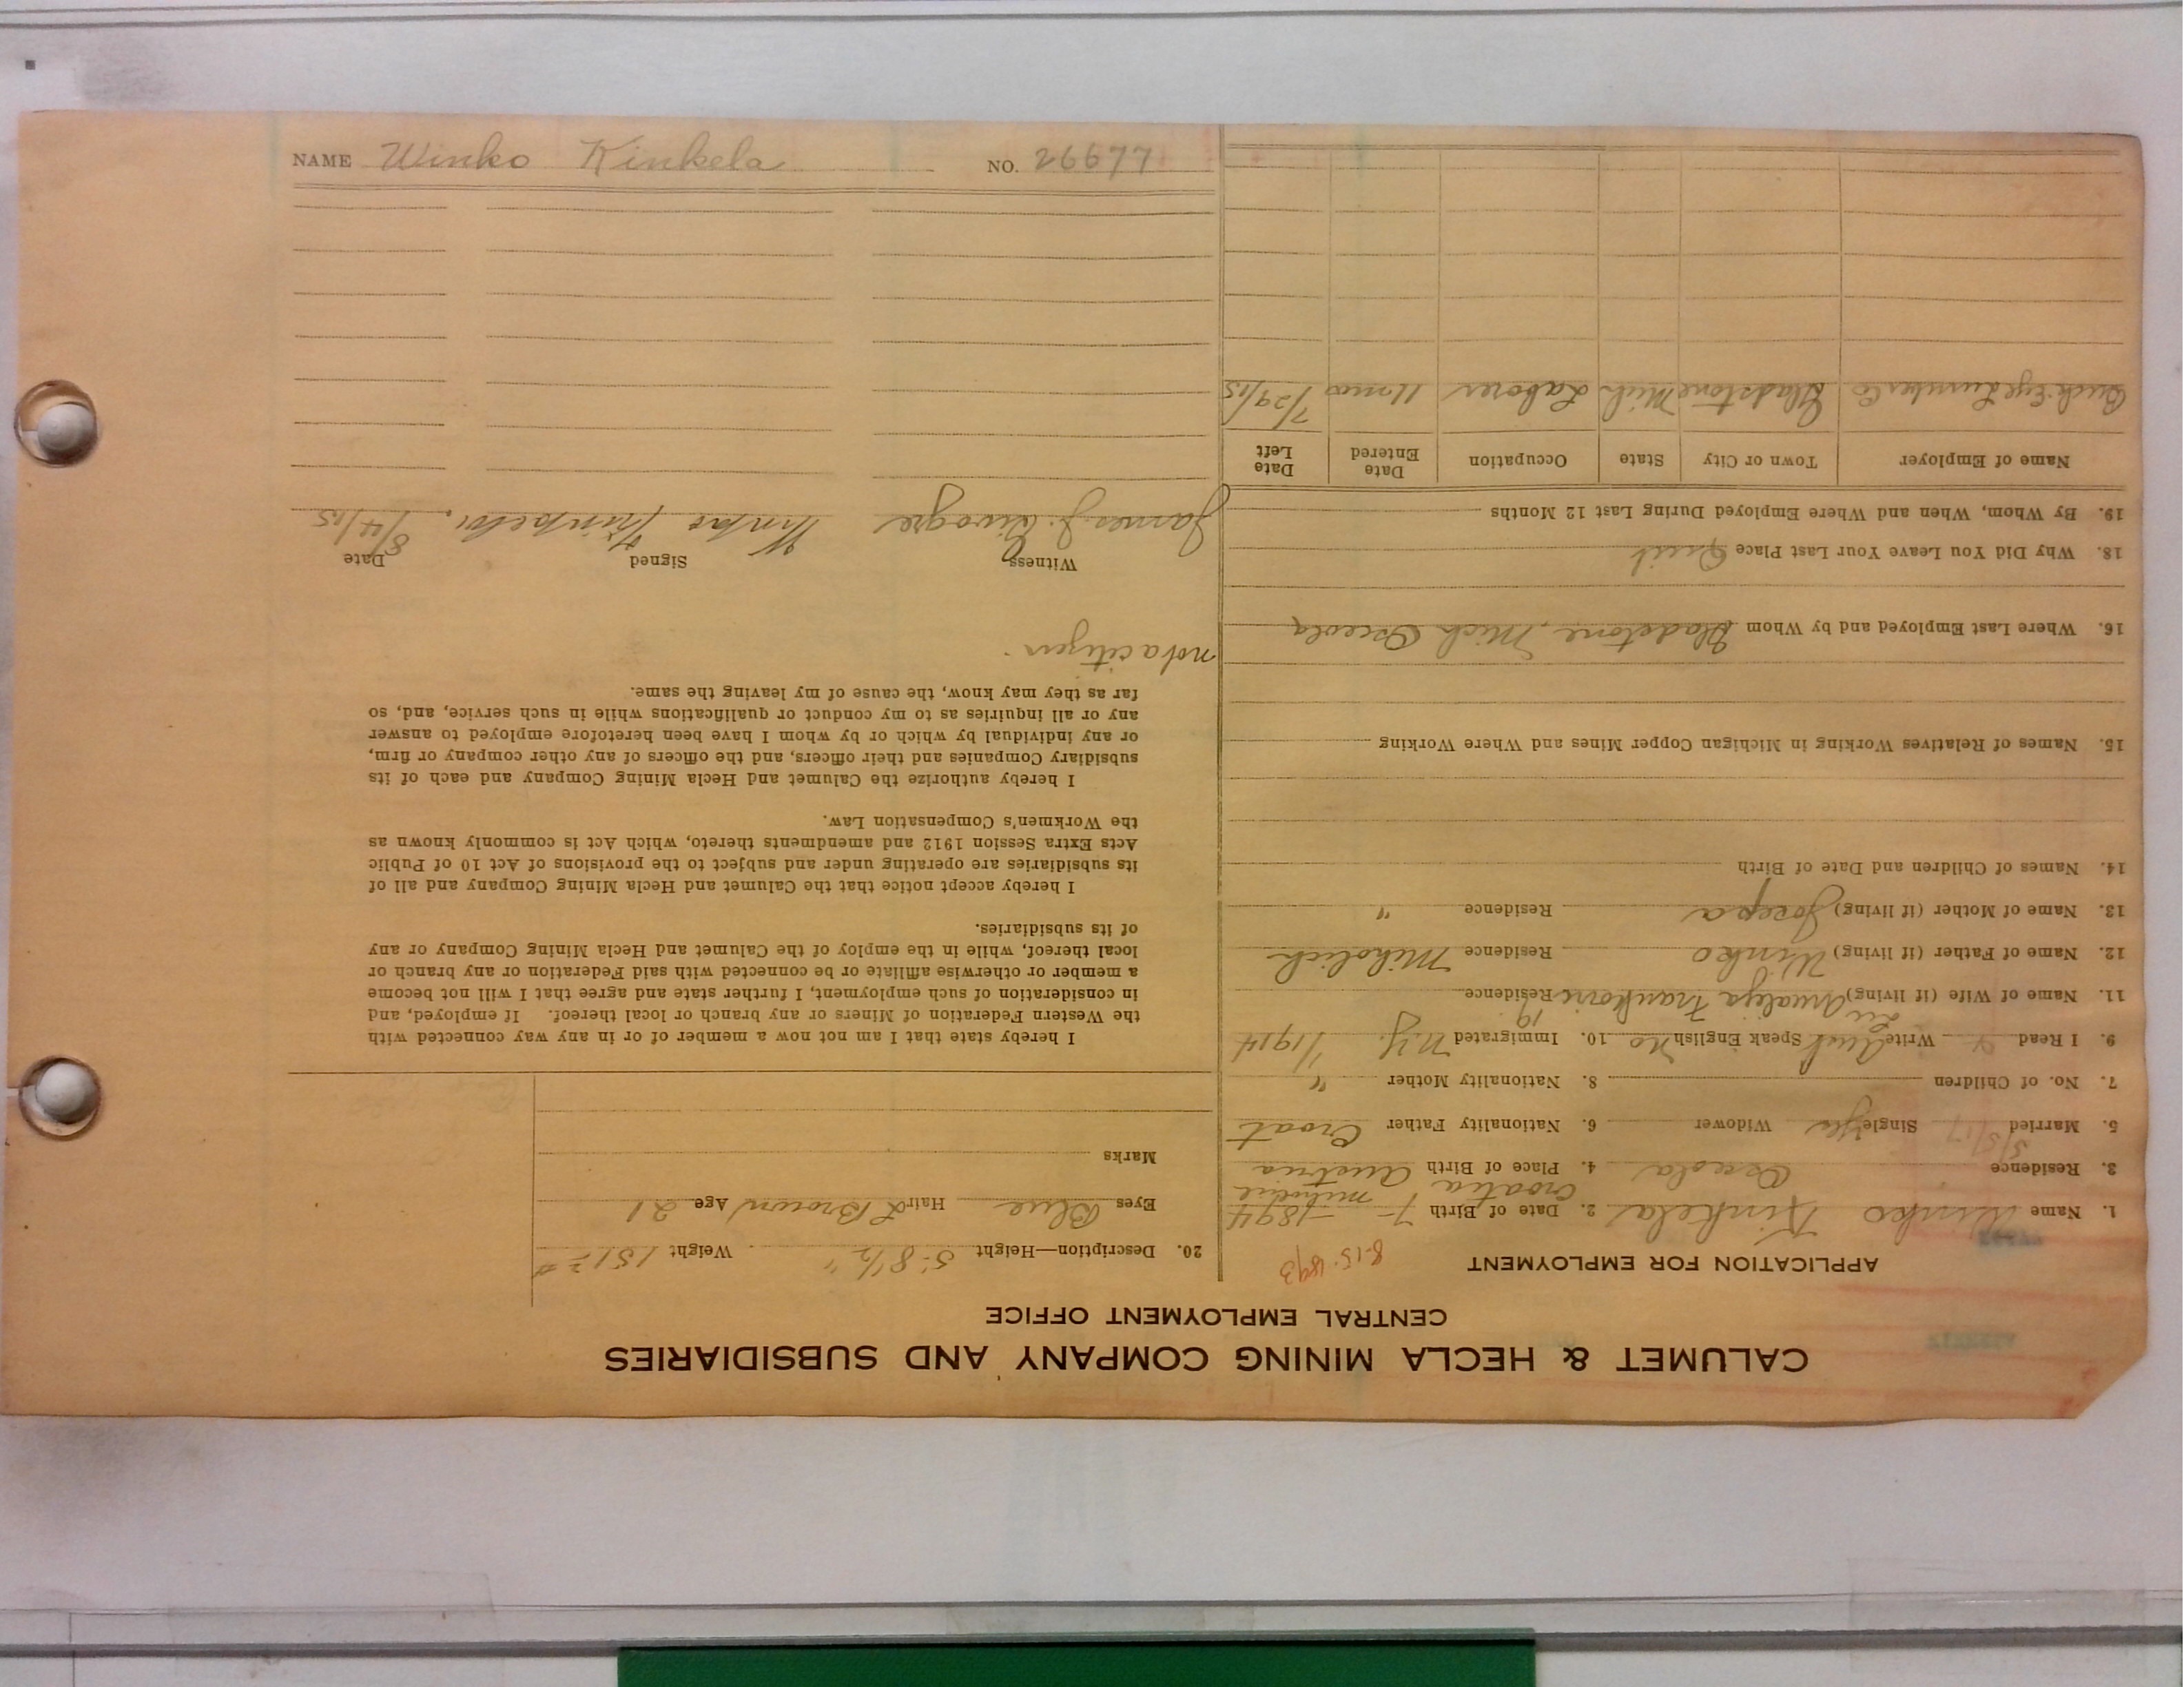 CALUMET & HECLA MINING COMPANY AND SUBSIDIARIES
CENTRAL EMPLOYMENT OFFICE
APPLICATION FOR EMPLOYMENT
8-15-1893
1. Name Winko Kinkela 2. Date of Birth 7- -1894
Croatia
3. Residence Osceola 4. Place of Birth Austria
5. Married 5/5/17 Single Yes Widower 6. Nationality Father Croat
7. No. of Children 8. Nationality Mother "
9. I Read Write Aust Speak English No 10. Immigrated N.Y. 1/1914
19
11. Name of Wife (if living) Amalija Frankovic Residence
12. Name of Father (if living) Winko Residence
13. Name of Mother (if living) Josepa Residence "
14. Names of Children and Date of Birth
15. Names of Relatives Working in Michigan Copper Mines and Where Working
16. Where Last Employed and by Whom Gladstone, Mich Osceola
18. Why Did You Leave Your Last Place Quit
19. By Whom, When and Where Employed During Last 12 Months
Name of Employer Town or City State Occupation Date Entered Date Left
Buck-Eye Lumber Co Gladstone Mich Laborer 11 mos 7/29/15
20. Description—Height 5-8 1/2" Weight 151 #
Eyes Blue Hair L Brown Age 21
Marks
I hereby state that I am not now a member of or in any way connected with
the Western Federation of Miners or any branch or local thereof. If employed, and
in consideration of such employment, I further state and agree that I will not become
a member or otherwise affiliate or be connected with said Federation or any branch or
local thereof, while in the employ of the Calumet and Hecla Mining Company or any
of its subsidiaries.
I hereby accept notice that the Calumet and Hecla Mining Company and all of
its subsidiaries are operating under and subject to the provisions of Act 10 of Public
Acts Extra Session 1912 and amendments thereto, which Act is commonly known as
the Workmen's Compensation Law.
I hereby authorize the Calumet and Hecla Mining Company and each of its
subsidiary Companies and their officers, and the officers of any other company or firm,
or any individual by which or by whom I have been heretofore employed to answer
any or all inquiries as to my conduct or qualifications while in such service, and, so
far as they may know, the cause of my leaving the same.
not a citizen.
Witness Signed Date
James J. Winko Kinkela. 8/4/15
NAME Winko Kinkela NO. 26677